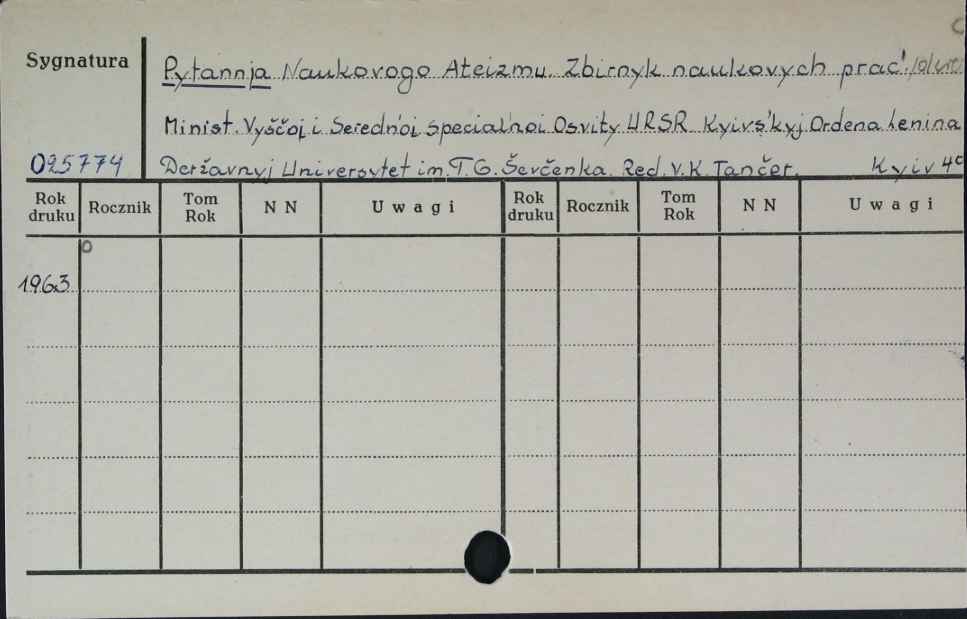 Sygnatura
Pytannja Naukovogo Ateizmu. Zbirnyk naukovych prac'.
Minist. Vyščoj i Seredn'oi special'noi Osvity URSR Kyivs'kyj Ordena Lenina
025774 Deržavnyj Universytet im. T. G. Ševčenka. Red. V. K. Tančer. Kyiv 4°
Rok druku Rocznik Tom Rok N N Uwagi Rok druku Rocznik Tom Rok N N Uwagi
0
1963